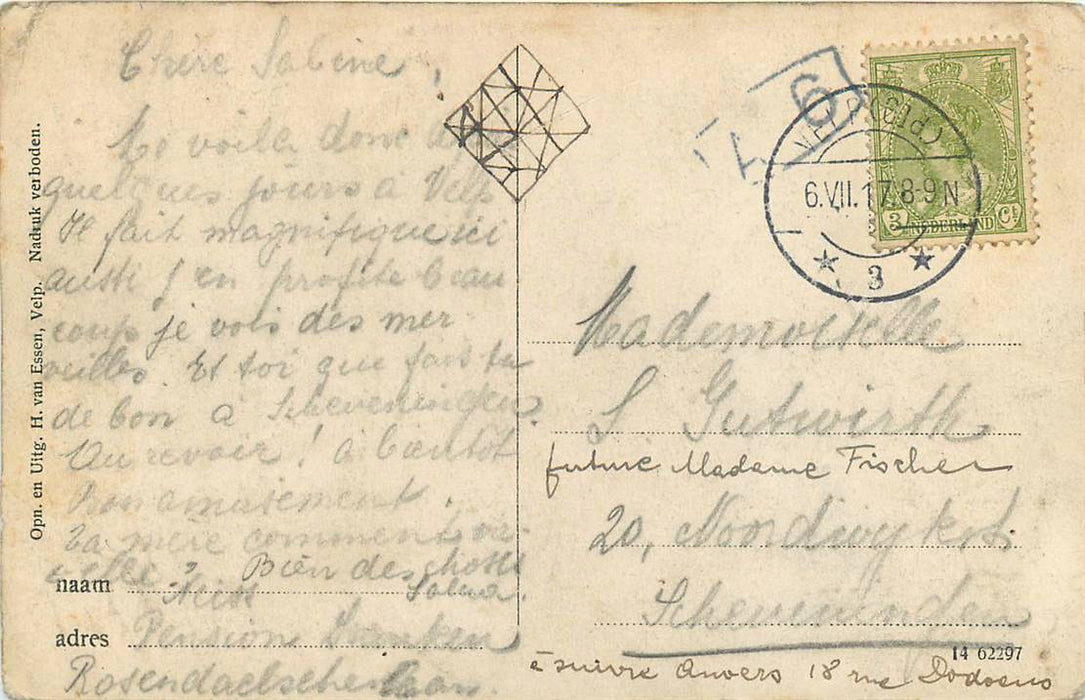 Chère Sabine
Me voilà donc
quelques jours à Velp
Il fait magnifique ici
aussi ! en profite beau
coup je vois des mer
veilles. Et toi que fais tu
de bon à Scheveningken.
Au revoir ! à bientôt
Bon amusement.
Ta mère comment va-
t-elle ? Bien des choses
naam
adres Pension
Rosendaelschelaan.
Opn. en Uitg. H. van Essen, Velp. Nadruk verboden.
T 6
VELP (GLD)
6.VII.17.8-9N
3
3 NEDERLAND Ct
Mademoiselle
S. Gutwirth
future Madame Fischer
20, Noordwijkst.
Scheveningen
14 62297
à suivre Anvers 18 rue Dodoens